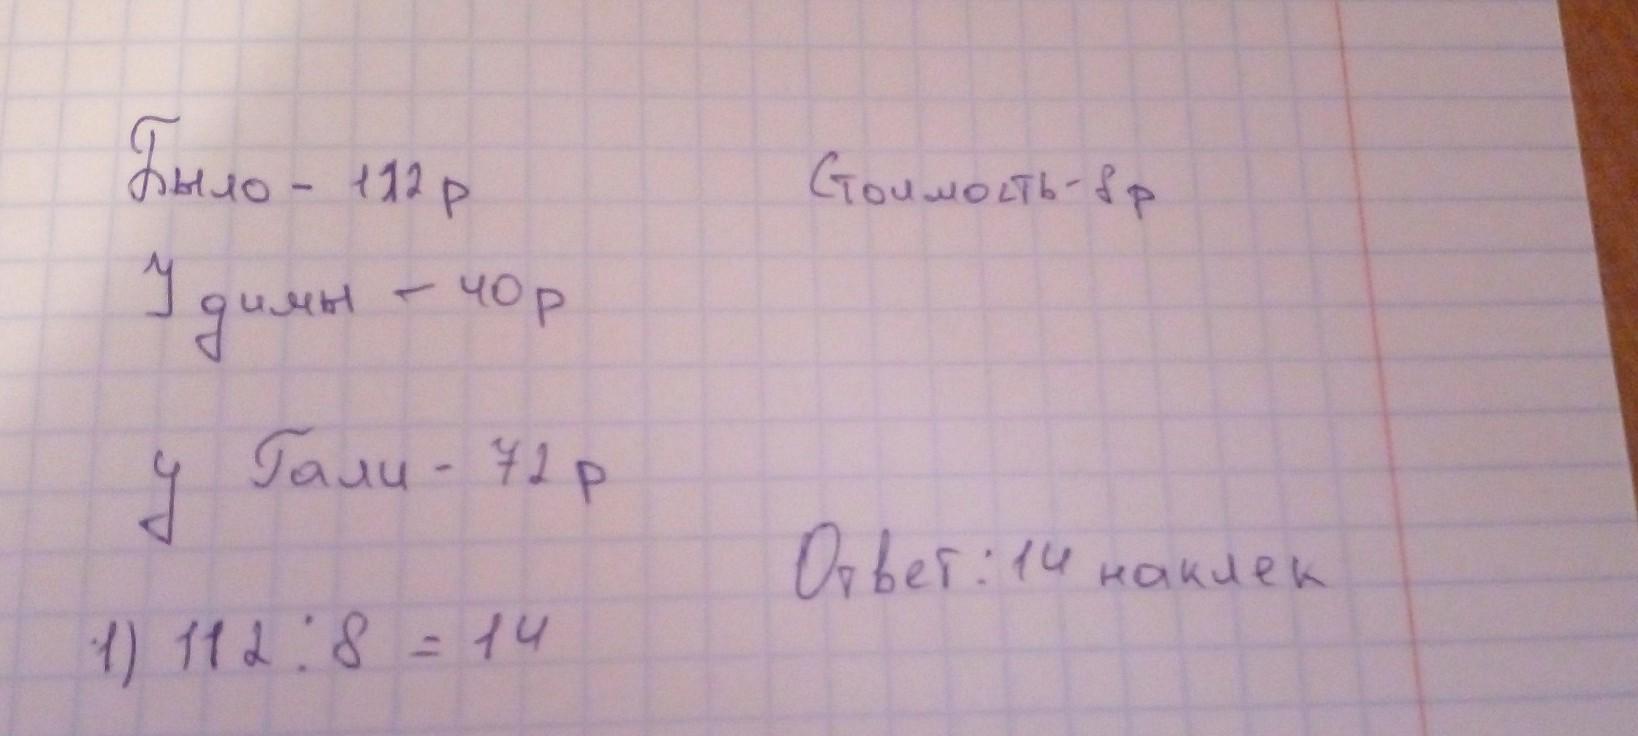 Было - 112 р
Стоимость - 8 р
У димы - 40 р
у Гали - 72 р
Ответ: 14 наклек
1) 112 : 8 = 14